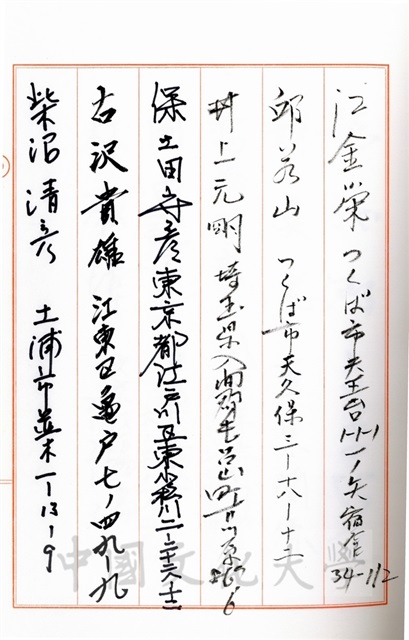 江金栄 つくば市天王台1-1-1 一ノ矢宿舎 34-112
邱若山 つくば市天久保三-十八-十三
井上元明 埼玉県入間郡毛呂山町川原267-6
保土田守彦 東京都江戸川区東小松川二-
古沢貴雄 江東区亀戸七-四九-九
柴沼清彦 土浦市並木一-13-9
中國文化大學